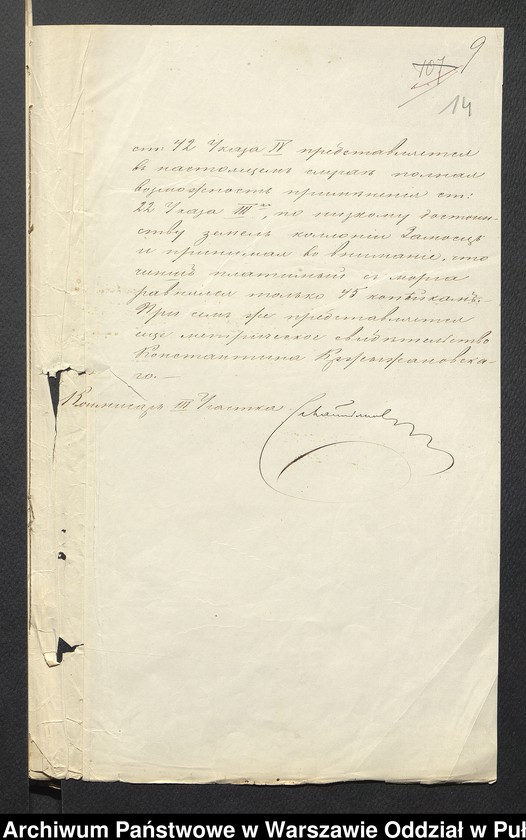 9
107
14
ст: 42 Указа IV представляется
въ настоящемъ случаѣ полная
возможность примѣненія ст:
22 Указа III го, по низкому достоин-
ству земель колоніи Замосць
и принимая во вниманіе, что
чиншъ платимый съ морга
равнялся только 75 копѣйкамъ.
При семъ же представляется
еще метрическое свидѣтельство
Константина Кржижановска-
го. —
Коммисаръ III Участка
Archiwum Państwowe w Warszawie Oddział w Puł